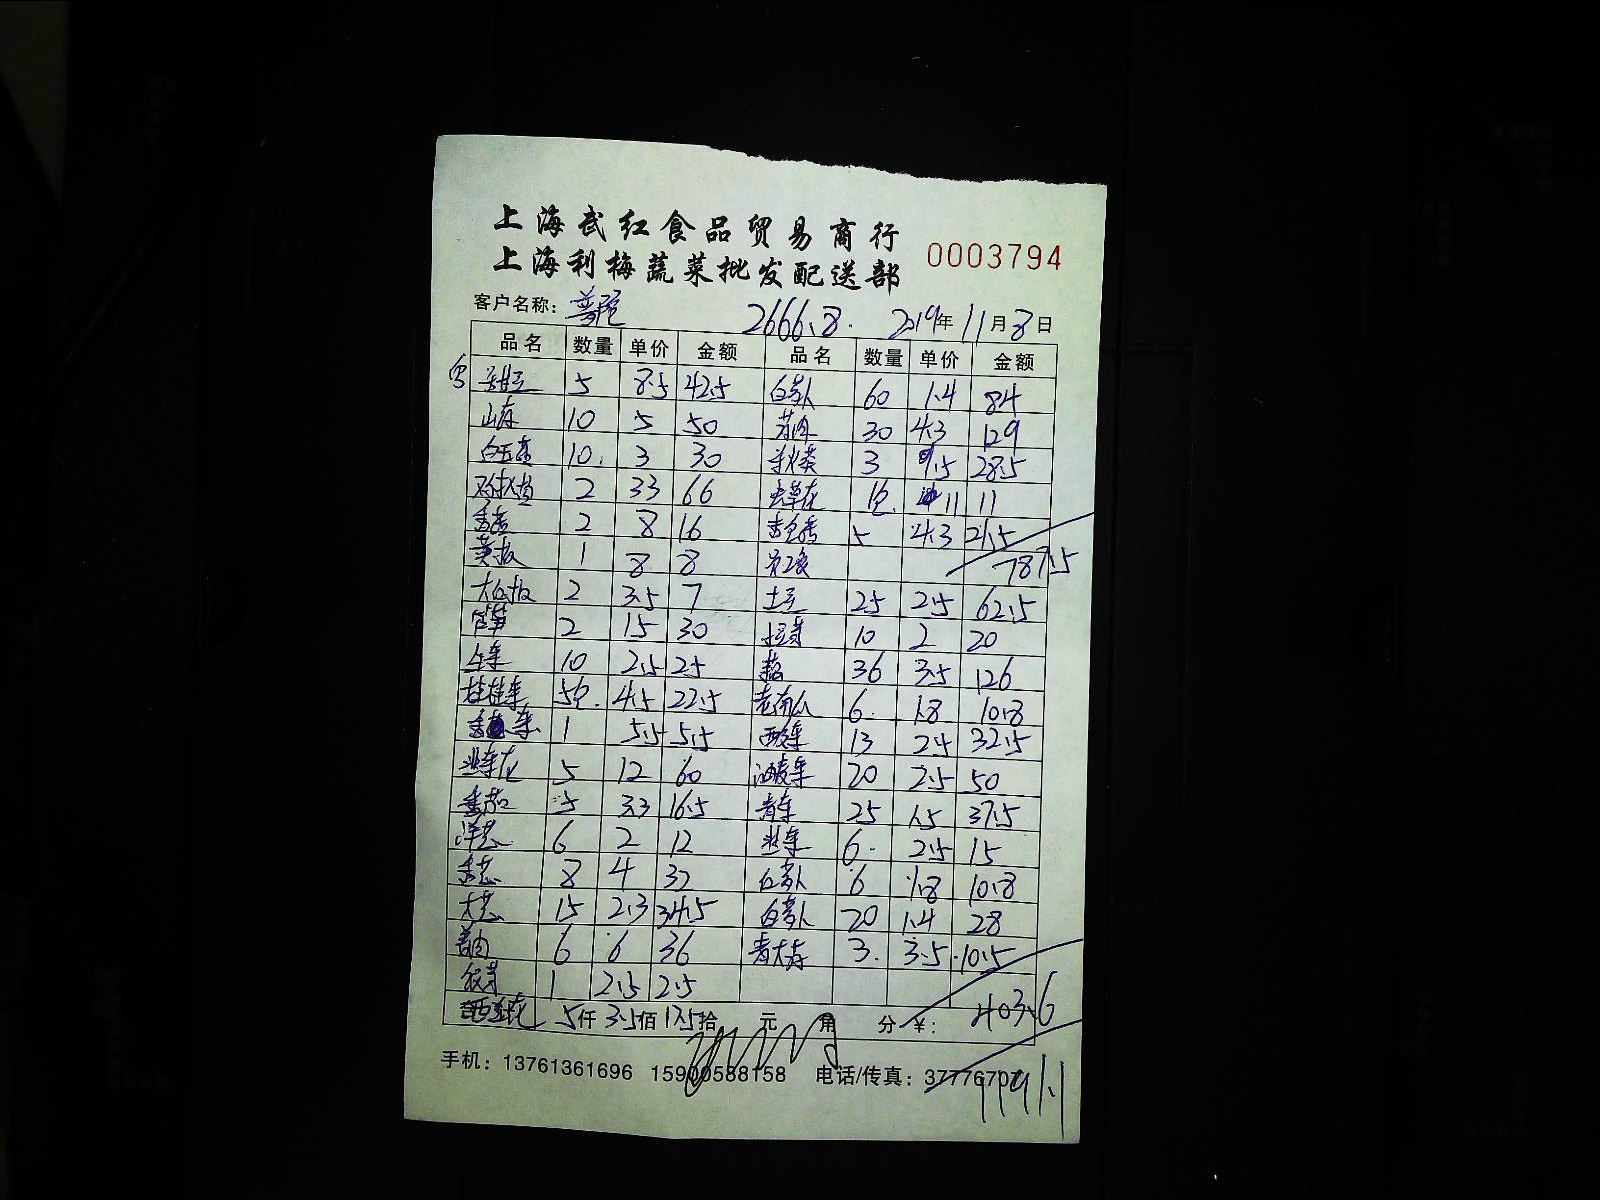 上海武红食品贸易商行
上海利梅蔬菜批发配送部 0003794
客户名称: 2666.8. 2019年11月8日
品名 数量 单价 金额 品名 数量 单价 金额
5 8.5 42.5 白萝卜 60 1.4 84
山药 10 5 50 30 4.3 129
白玉菇 10. 3 30 3 9.5 28.5
2 33 66 虫草花 1包. 11 11
香菇 2 8 16 5 4.3 21.5
黄椒 1 8 8 787.5
大红椒 2 3.5 7 土豆 25 2.5 62.5
2 15 30 10 2 20
生菜 10 2.5 25 36 3.5 126
5包. 4.5 22.5 老南瓜 6. 1.8 10.8
香菜 1 5.5 5.5 13 2.4 32.5
韭菜花 5 12 60 油麦菜 20 2.5 50
番茄 5 3.3 16.5 青菜 25 1.5 37.5
洋葱 6 2 12 韭菜 6. 2.5 15
香葱 8 4 32 红萝卜 6 1.8 10.8
大葱 15 2.3 34.5 白萝卜 20 1.4 28
姜肉 6 6 36 青大蒜 3. 3.5 10.5
1 2.5 2.5
西兰花 5仟 3.5佰 17.5拾 元 角 分 ¥: 403.6
手机: 13761361696 15900588158 电话/传真: 37776707